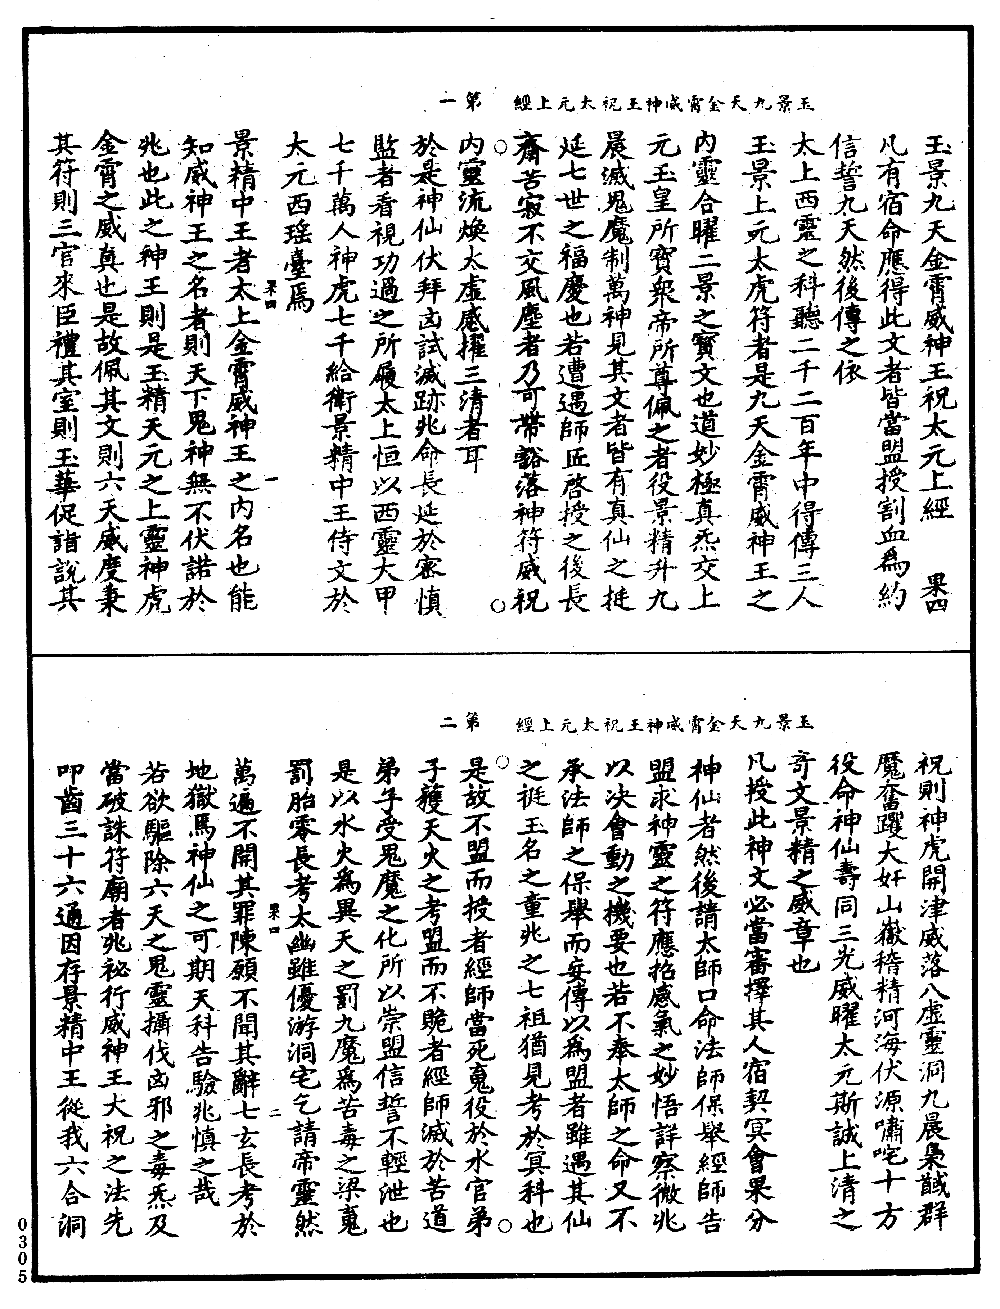 玉景九天金霄威神王祝太元上經　第一
玉景九天金霄威神王祝太元上經　果四
凡有宿命應得此文者皆當盟授割血為約
信誓九天然後傳之依
太上西靈之科聽二千二百年中得傳三人
玉景上元太虎符者是九天金霄威神王之
內靈合曜二景之寶文也道妙極真炁交上
元玉皇所寶衆帝所尊佩之者役景精升九
晨滅鬼魔制萬神見其文者皆有真仙之挺
延七世之福慶也若遭遇師匠啓授之後長
齋苦寂不交風塵者乃可帶豁落神符威祝
內靈流煥太虛威擢三清者耳
於是神仙伏拜凶試滅跡兆命長延於密慎
監者看視功過之所履太上恒以西靈大甲
七千萬人神虎七千給衛景精中王侍文於
大元西瑤臺焉
果四　一
景精中王者太上金霄威神王之內名也能
知威神王之名者則天下鬼神無不伏諾於
兆也此之神王則是玉精天元之上靈神虎
金霄之威真也是故佩其文則六天威度秉
其符則三官來臣禮其室則玉華促詣說其
玉景九天金霄威神王祝太元上經　第二
祝則神虎開津威落八虛靈洞九晨梟馘群
魔奮躍大奸山嶽稽精河海伏源嘯咤十方
役命神仙壽同三光威曜太元斯誠上清之
奇文景精之威章也
凡授此神文必當審擇其人宿契冥會果分
神仙者然後請太師口命法師保舉經師告
盟求神靈之符應招感氣之妙悟詳察微兆
以決會動之機要也若不奉太師之命又不
承法師之保舉而妄傳以為盟者雖遇其仙
之挺玉名之童兆之七祖猶見考於冥科也
是故不盟而授者經師當死䰟役於水官弟
子蘉天火之考盟而不貺者經師滅於苦道
弟子受鬼魔之化所以崇盟信誓不輕泄也
是以水火為異天之罰九魔為苦毒之梁䰟
罰胎零長考太幽雖優游洞宅乞請帝靈然
果四　二
萬遍不開其罪陳願不聞其辭七玄長考於
地獄焉神仙之可期天科告驗兆慎之哉
若欲驅除六天之鬼靈攝伐凶邪之毒炁及
當破誅符廟者兆祕行威神王大祝之法先
叩齒三十六通因存景精中王從我六合洞
0305